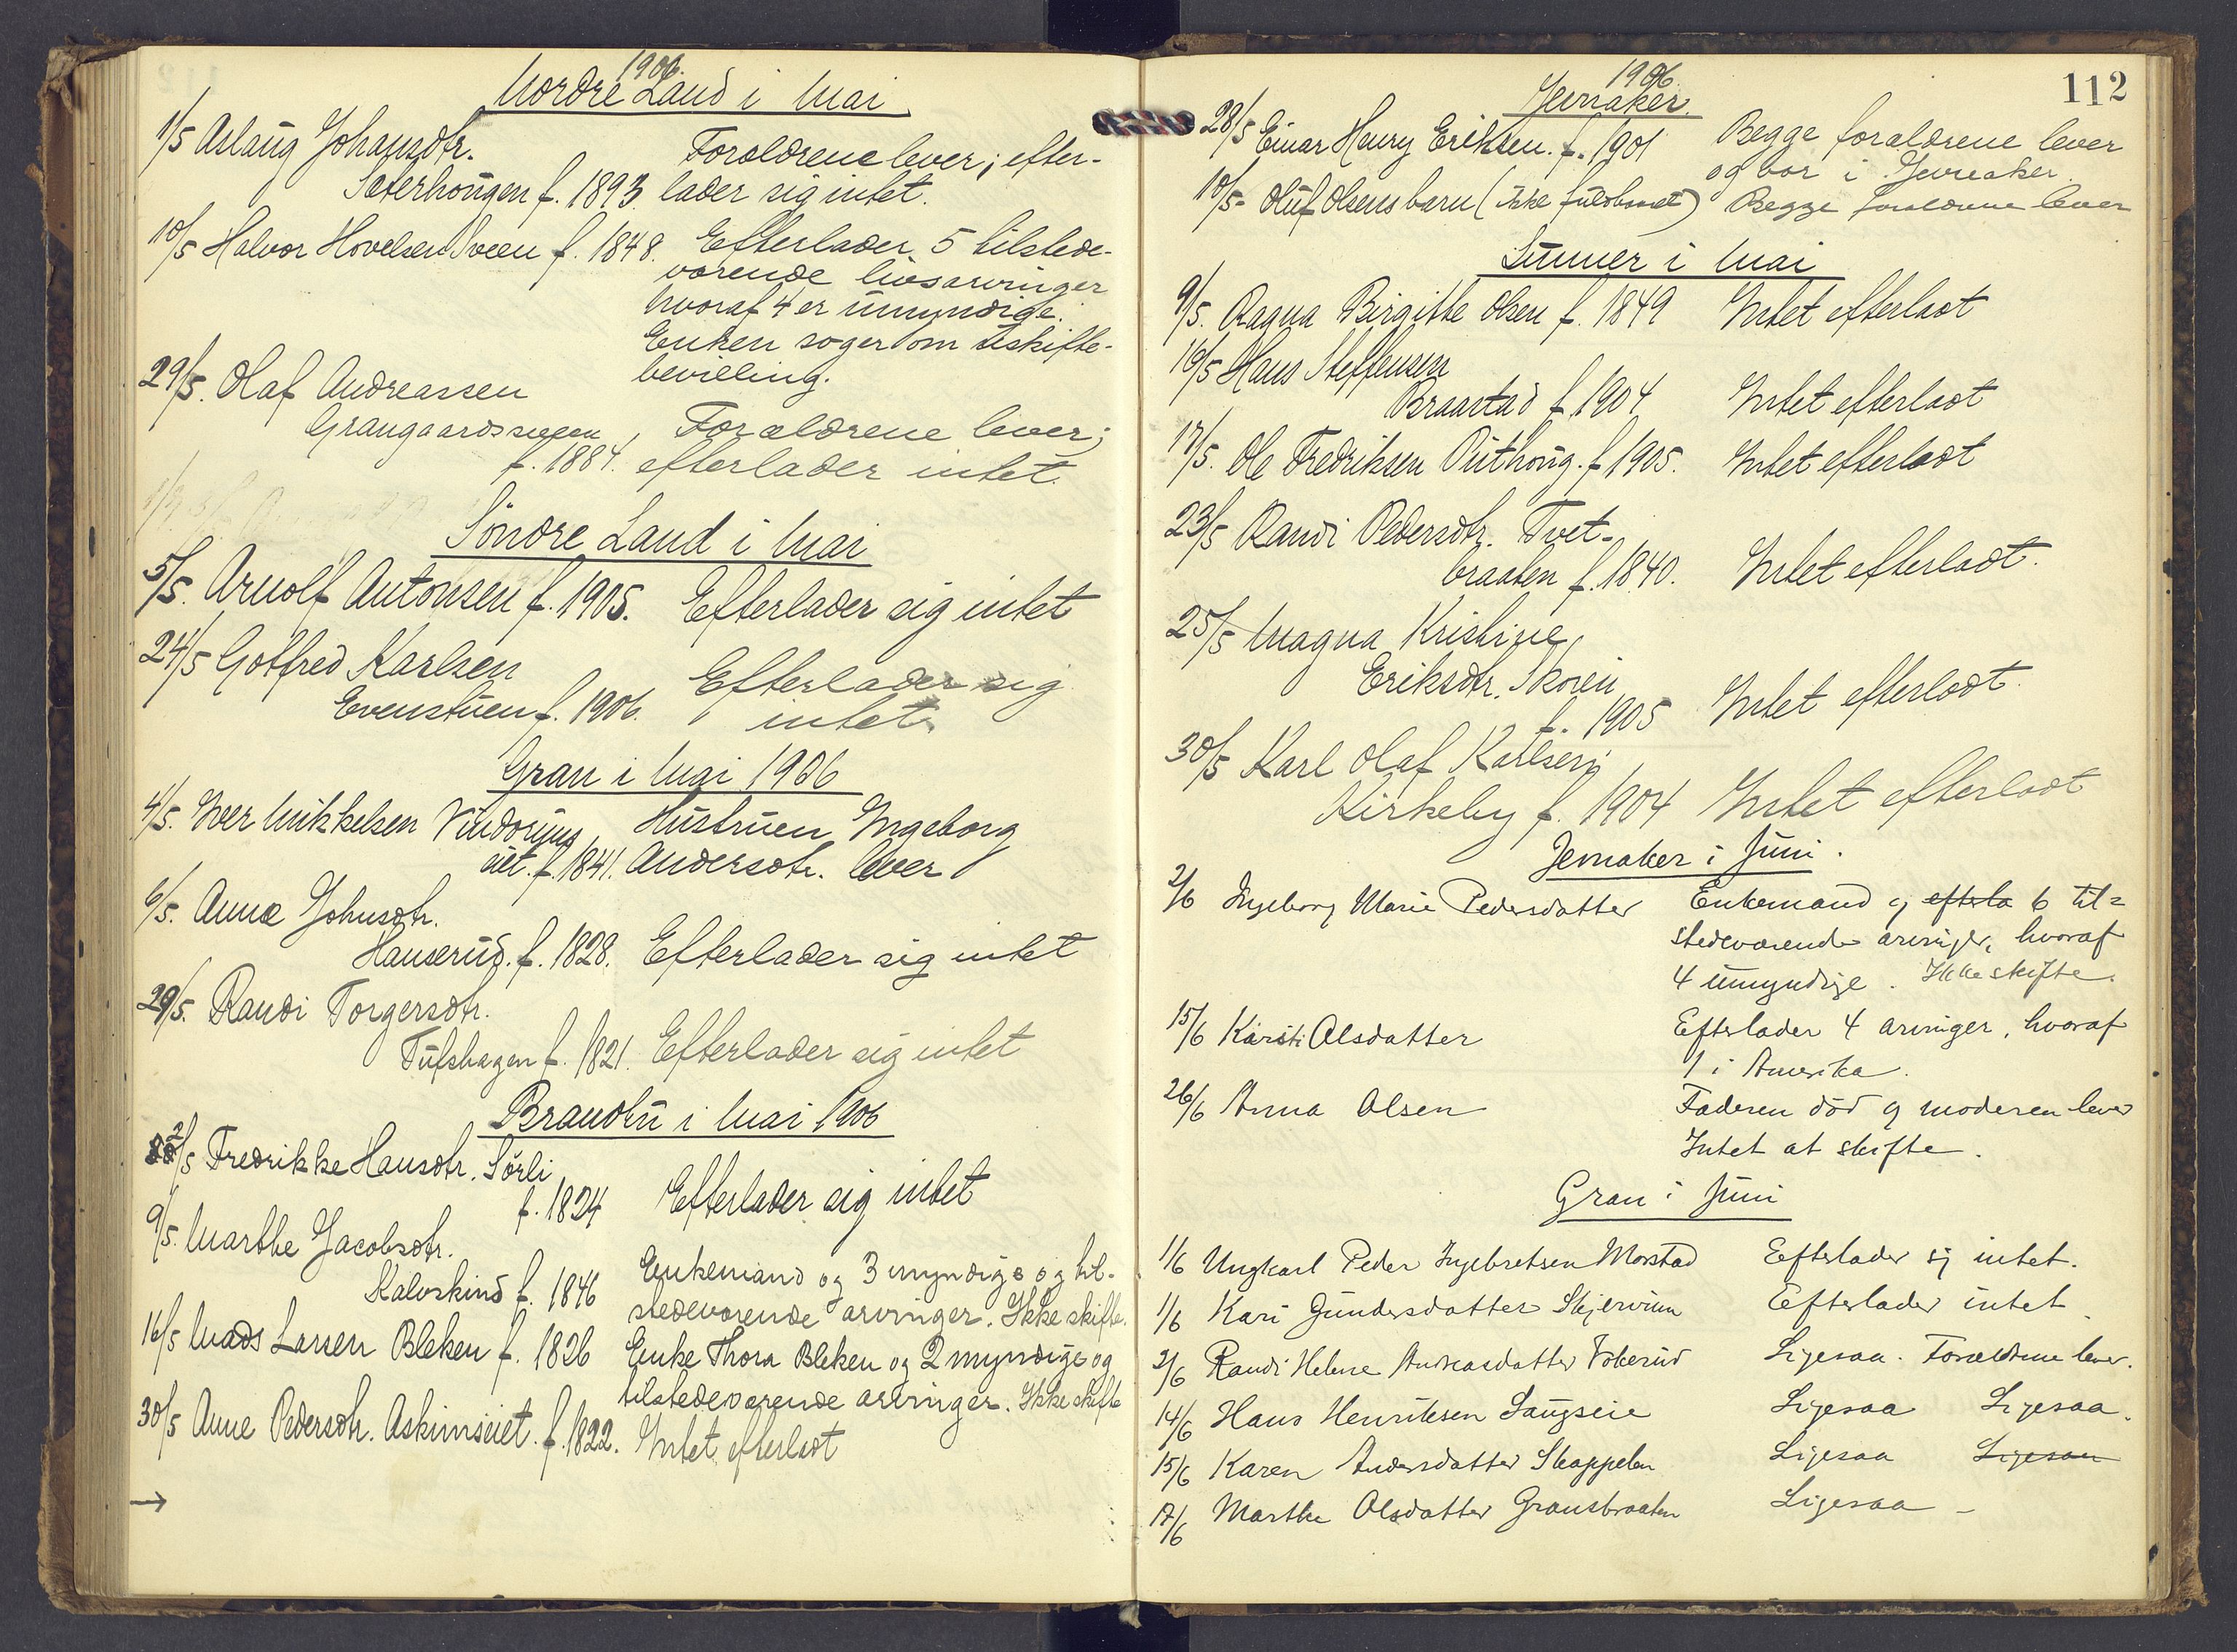 1906.
Nordre Land i Mai
1/5 Aslaug Johansdtr. Forældrene lever; efter-
Sæterhougen f. 1893 lader sig intet.
10/5 Halvor Hovelsen Sveen f. 1848. Efterlader 5 tilstede-
værende livsarvinger
hvoraf 4 er umyndige.
Enken søger om uskifte-
bevilling.
29/5. Olaf Andreassen
Grangaardsveen, Forældrene lever;
f. 1884. efterlader intet.
Söndre Land i Mai
5/5. Arnolf Antonsen f. 1905. Efterlader sig intet
24/5 Gotfred Karlsen Efterlader sig
Evenstuen f. 1906. intet.
Gran i Mai 1906
4/5. Iver Mikkelsen Vindorums Hustruen Ingeborg
eiet. f. 1841. Andersdtr. lever
6/5. Anne Johnsdtr.
Hanserud. f. 1828. Efterlader sig intet
29/5. Randi Torgersdtr.
Tufshagen f. 1821. Efterlader sig intet
Brandbu i Mai 1906
2/5 Fredrikke Hansdtr. Sörli
f. 1824 Efterlader sig intet
9/5. Marthe Jacobsdtr.
Kalvskind f. 1846 Enkemand og 3 myndige og til-
stedeværende arvinger. Ikke skifte.
16/5 Mads Larsen Bleken f. 1826 Enke Thora Bleken og 2 myndige og
tilstedeværende arvinger. Ikke skifte
30/5 Anne Pedersdtr. Askimseiet. f. 1822. Intet efterladt
→
112
1906.
Jevnaker.
28/5 Einar Henry Eriksen. f. 1901 Begge forældrene lever
og bor i Jevnaker.
10/5- Oluf Olsens barn (ikke fuldbaaret) Begge forældrene lever
Lunner i Mai
9/5. Ragna Birgitte Olsen f. 1849 Intet efterladt
16/5 Hans Steffensen
Braastad f. 1904 Intet efterladt
17/5. Ole Fredriksen Puthoug. f. 1905. Intet efterladt
23/5 Randi Pedersdtr. Tvet-
braaten f. 1840. Intet efterladt.
25/5 Magna Kristine
Eriksdtr. Skoien
f. 1905 Intet efterladt.
30/5 Karl Olaf Karlsen
Kirkeby f. 1904 Intet efterladt
Jevnaker i Juni.
2/6 Ingeborg Marie Pedersdatter Enkemand og efterla 6 til=
stedeværende arvinger, hvoraf
4 umyndige. Ikke skifte.
15/6 Karsti Olsdatter Efterlader 4 arvinger, hvoraf
1 i Amerika.
26/6 Anna Olsen Faderen död og moderen lever
Intet at skifte.
Gran i Juni
1/6 Ungkarl Peder Ingebretsen Morstad Efterlader sig intet.
1/6 Kari Gundersdatter Skjervum Efterlader intet
2/6 Randi Helene Andreasdatter Vokerud Ligesaa. Forældrene lever.
14/6 Hans Henriksen Saugseie Ligesaa Ligesaa.
15/6 Karen Andersdatter Skappelen Ligesaa Ligesaa
17/6 Marthe Olsdatter Gransbraaten Ligesaa -